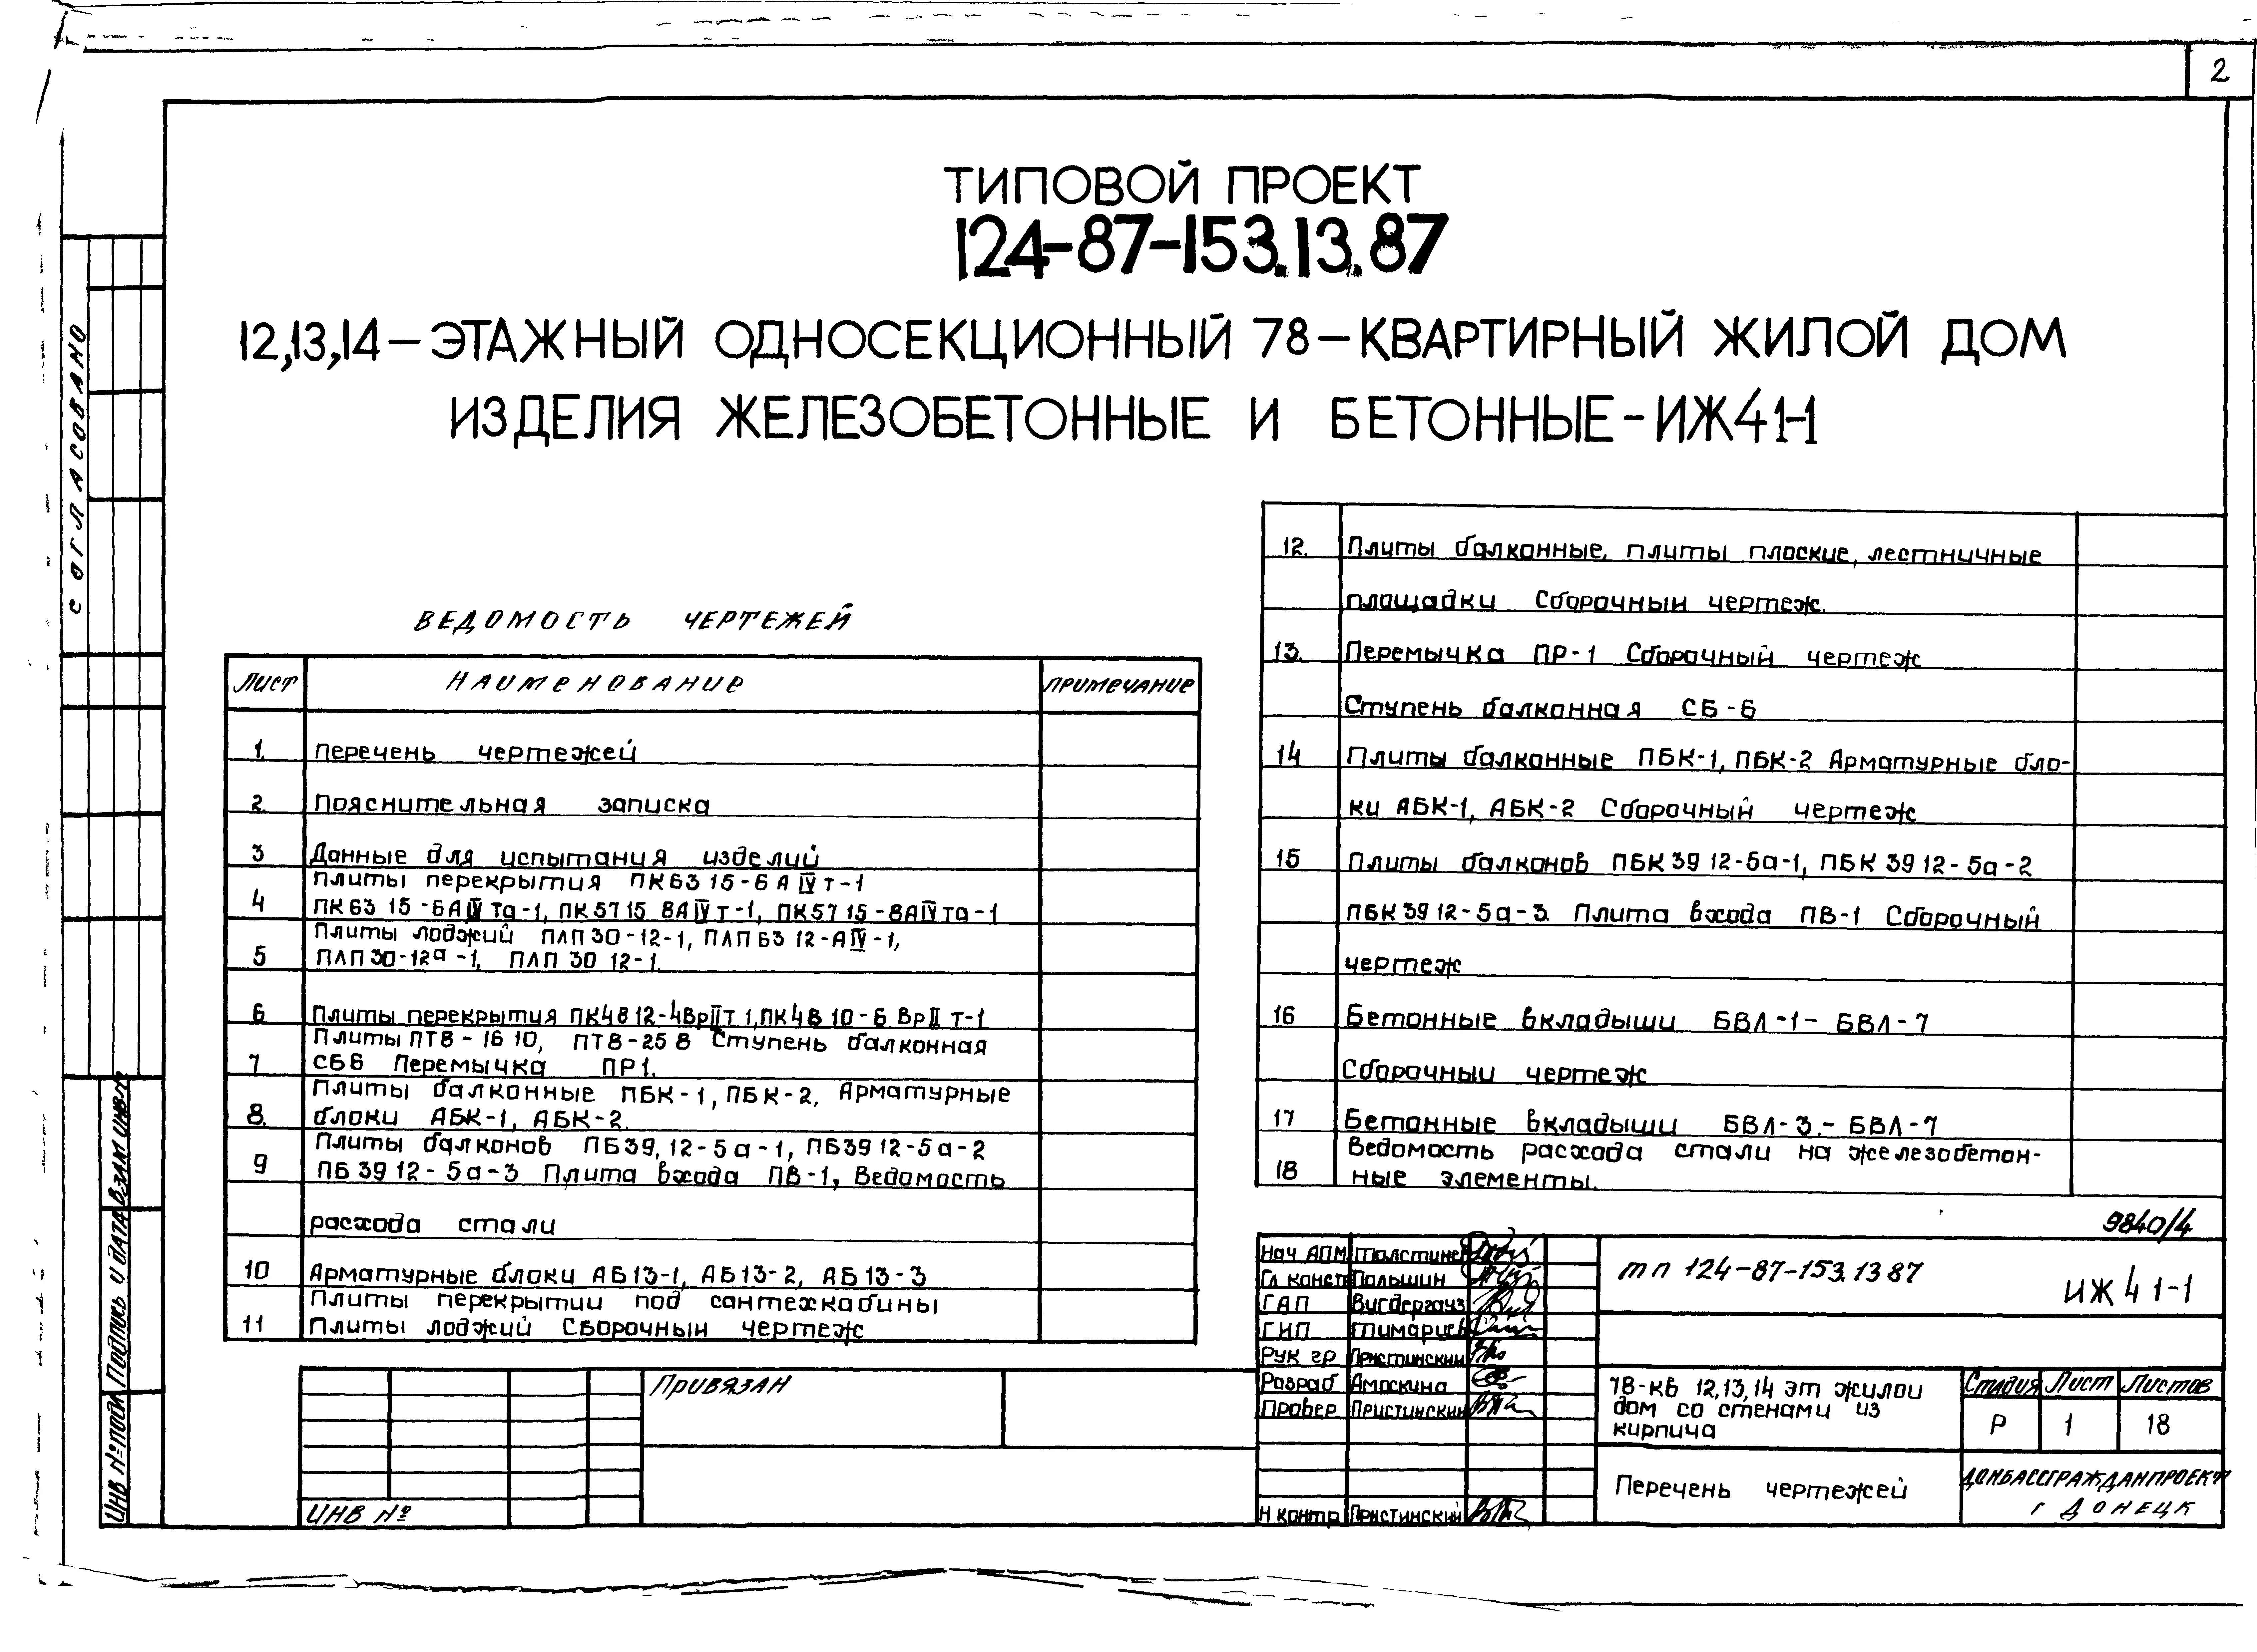 2
ТИПОВОЙ ПРОЕКТ
124-87-153.13.87
12,13,14-ЭТАЖНЫЙ ОДНОСЕКЦИОННЫЙ 78-КВАРТИРНЫЙ ЖИЛОЙ ДОМ
ИЗДЕЛИЯ ЖЕЛЕЗОБЕТОННЫЕ И БЕТОННЫЕ-ИЖ41-1
СОГЛАСОВАНО
ВЕДОМОСТЬ ЧЕРТЕЖЕЙ
Лист НАИМЕНОВАНИЕ ПРИМЕЧАНИЕ
1. перечень чертежей
2. Пояснительная записка
3 Данные для испытания изделий
Плиты перекрытия ПК63 15-6 А IV т-1
4 ПК63 15-6АIV та-1, ПК57 15 8АIV т-1, ПК57 15-8АIV та-1
Плиты лоджий ПЛП30-12-1, ПЛП63 12-АIV-1,
5 ПЛП30-12а-1, ПЛП 30 12-1.
6 Плиты перекрытия ПК48 12-4ВрIIт 1, ПК48 10-6 ВрII т-1
Плиты ПТ8-16 10, ПТ8-25 8 Ступень балконная
7 СБ6 Перемычка ПР1.
Плиты балконные ПБК-1, ПБК-2, Арматурные
8. блоки АБК-1, АБК-2.
Плиты балконов ПБ39, 12-5а-1, ПБ39 12-5а-2
9 ПБ 39 12-5а-3 Плита входа ПВ-1, Ведомость
расхода стали
10 Арматурные блоки АБ13-1, АБ13-2, АБ13-3
Плиты перекрытии под сантехкабины
11 Плиты лоджий Сборочныи чертеж
12. Плиты балконные, плиты плоские, лестничные
площадки Сборочныи чертеж.
13. Перемычка ПР-1 Сборочный чертеж
Ступень балконная СБ-6
14 Плиты балконные ПБК-1, ПБК-2 Арматурные бло-
ки АБК-1, АБК-2 Сборочный чертеж
15 Плиты балконов ПБК 39 12-5а-1, ПБК 39 12-5а-2
ПБК 39 12-5а-3. Плита входа ПВ-1 Сборочный
чертеж
16 Бетонные вкладыши БВЛ-1- БВЛ-7
Сборочныи чертеж
17 Бетонные вкладыши БВЛ-3.- БВЛ-7
Ведомость расхода стали на железобетон-
18 ные элементы.
9840/4
Нач АПМ
Гл констр Польшин
ГАП Вигдергауз
ГИП
Рук гр Пристинский
Разраб Амоскина
Провер Пристинский
Н контр Пристинский
тп 124-87-153.13 87 ИЖ 41-1
78-кв 12,13,14 эт жилои
дом со стенами из
кирпича
Стадия Лист Листов
Р 1 18
Перечень чертежей
ДОНБАССГРАЖДАНПРОЕКТ
г ДОНЕЦК
ПРИВЯЗАН
ИНВ №
ИНВ №подл Подпись и дата Взам инв №